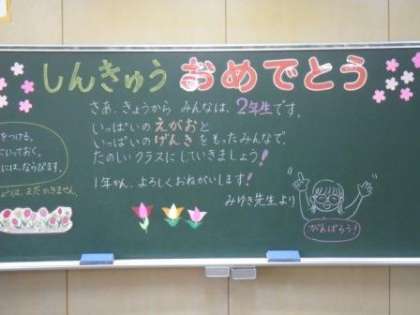 しんきゅう おめでとう
さあ、きょうから みんなは、2年生です。
いっぱいの えがおと
いっぱいの げんき をもったみんなで、
たのしいクラスにしていきましょう!
1年かん、よろしくおねがいします!
みゆき先生より
がんばろう!
をつける。
にいっておく。
には、ならびます。
は、まだかきません